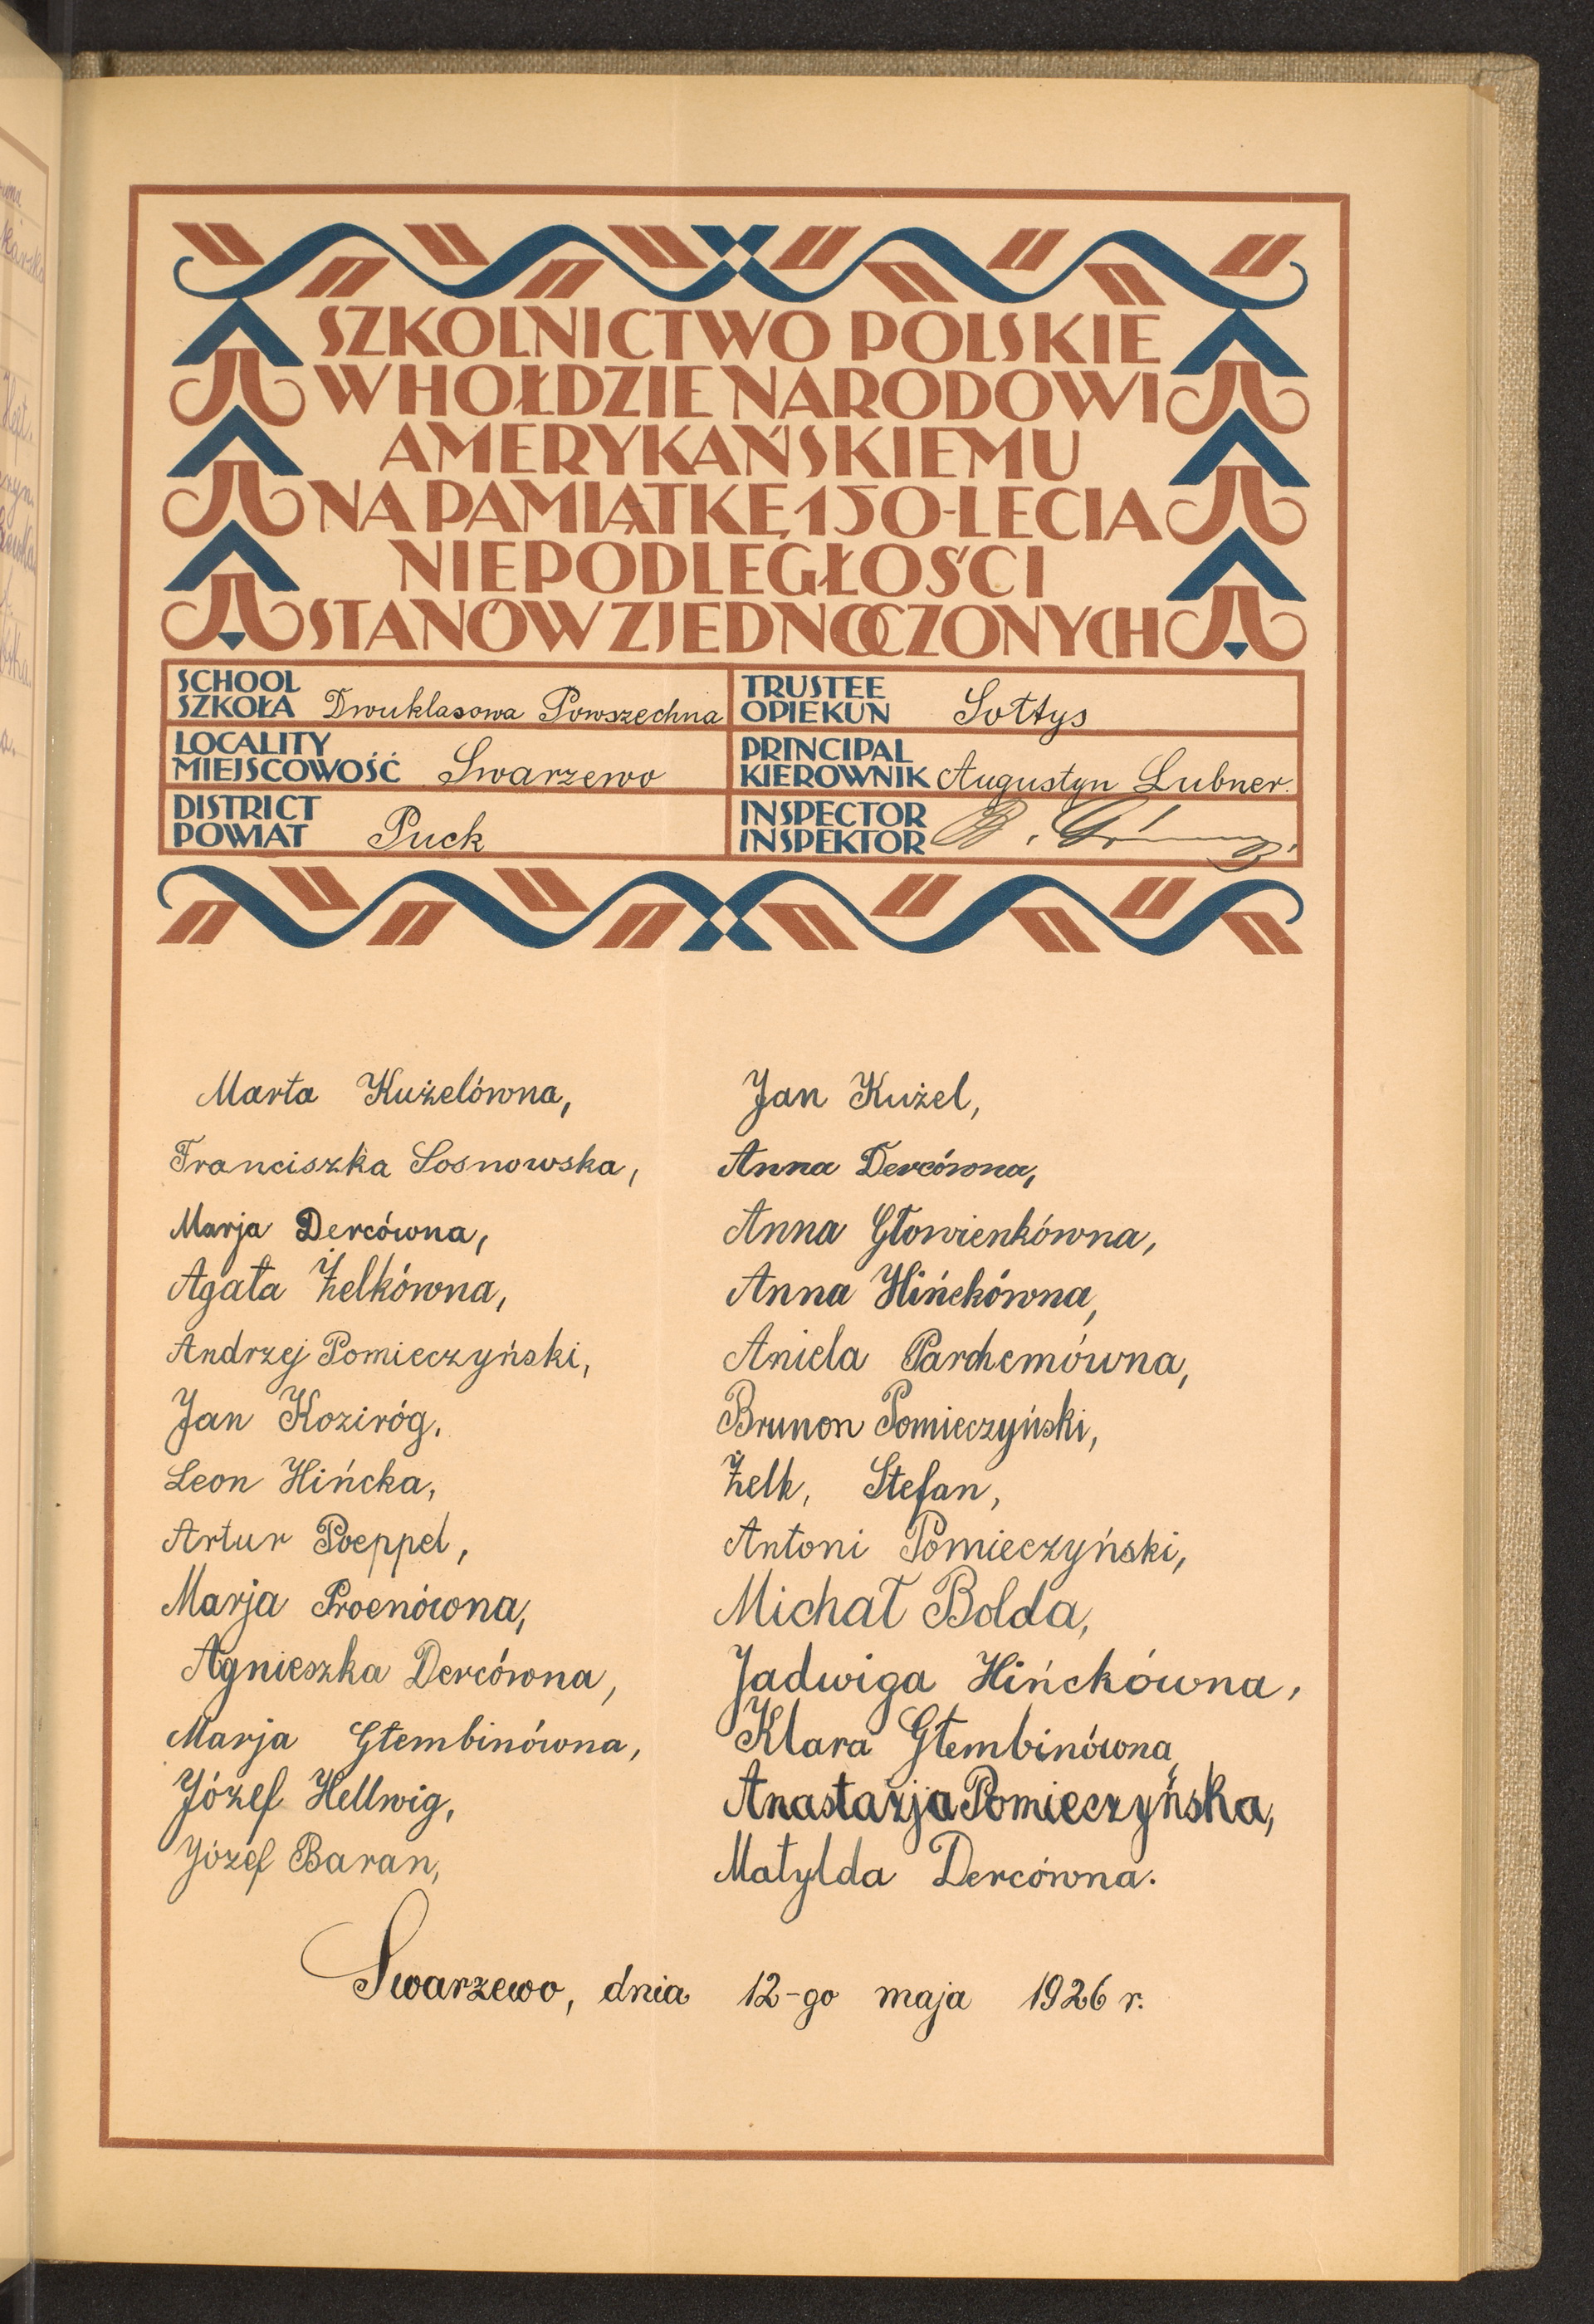 SZKOLNICTWO POLSKIE
W HOŁDZIE NARODOWI
AMERYKAŃSKIEMU
NA PAMIĄTKĘ 150-LECIA
NIEPODLEGŁOŚCI
STANÓW ZJEDNOCZONYCH
SCHOOL
SZKOŁA Dwuklasowa Powszechna
TRUSTEE
OPIEKUN Sołtys
LOCALITY
MIEJSCOWOŚĆ Swarzewo
PRINCIPAL
KIEROWNIK Augustyn Lubner.
DISTRICT
POWIAT Puck
INSPECTOR
INSPEKTOR B.
Marta Kużelówna,
Franciszka Sosnowska,
Marja Dercówna,
Agata Żelkówna,
Andrzej Pomieczyński,
Jan Koziróg.
Leon Hińcka,
Artur Poeppel,
Marja Proenówna,
Agnieszka Dercówna,
Marja Głembinówna,
Józef Hellwig,
Józef Baran,
Jan Kużel,
Anna Dercówna,
Anna Głowienkówna,
Anna Hińckówna,
Aniela Parchemówna,
Brunon Pomieczyński,
Żelk, Stefan,
Antoni Pomieczyński,
Michał Bolda,
Jadwiga Hińckówna,
Klara Głembinówna,
Anastazja Pomieczyńska,
Matylda Dercówna.
Swarzewo, dnia 12-go maja 1926 r.